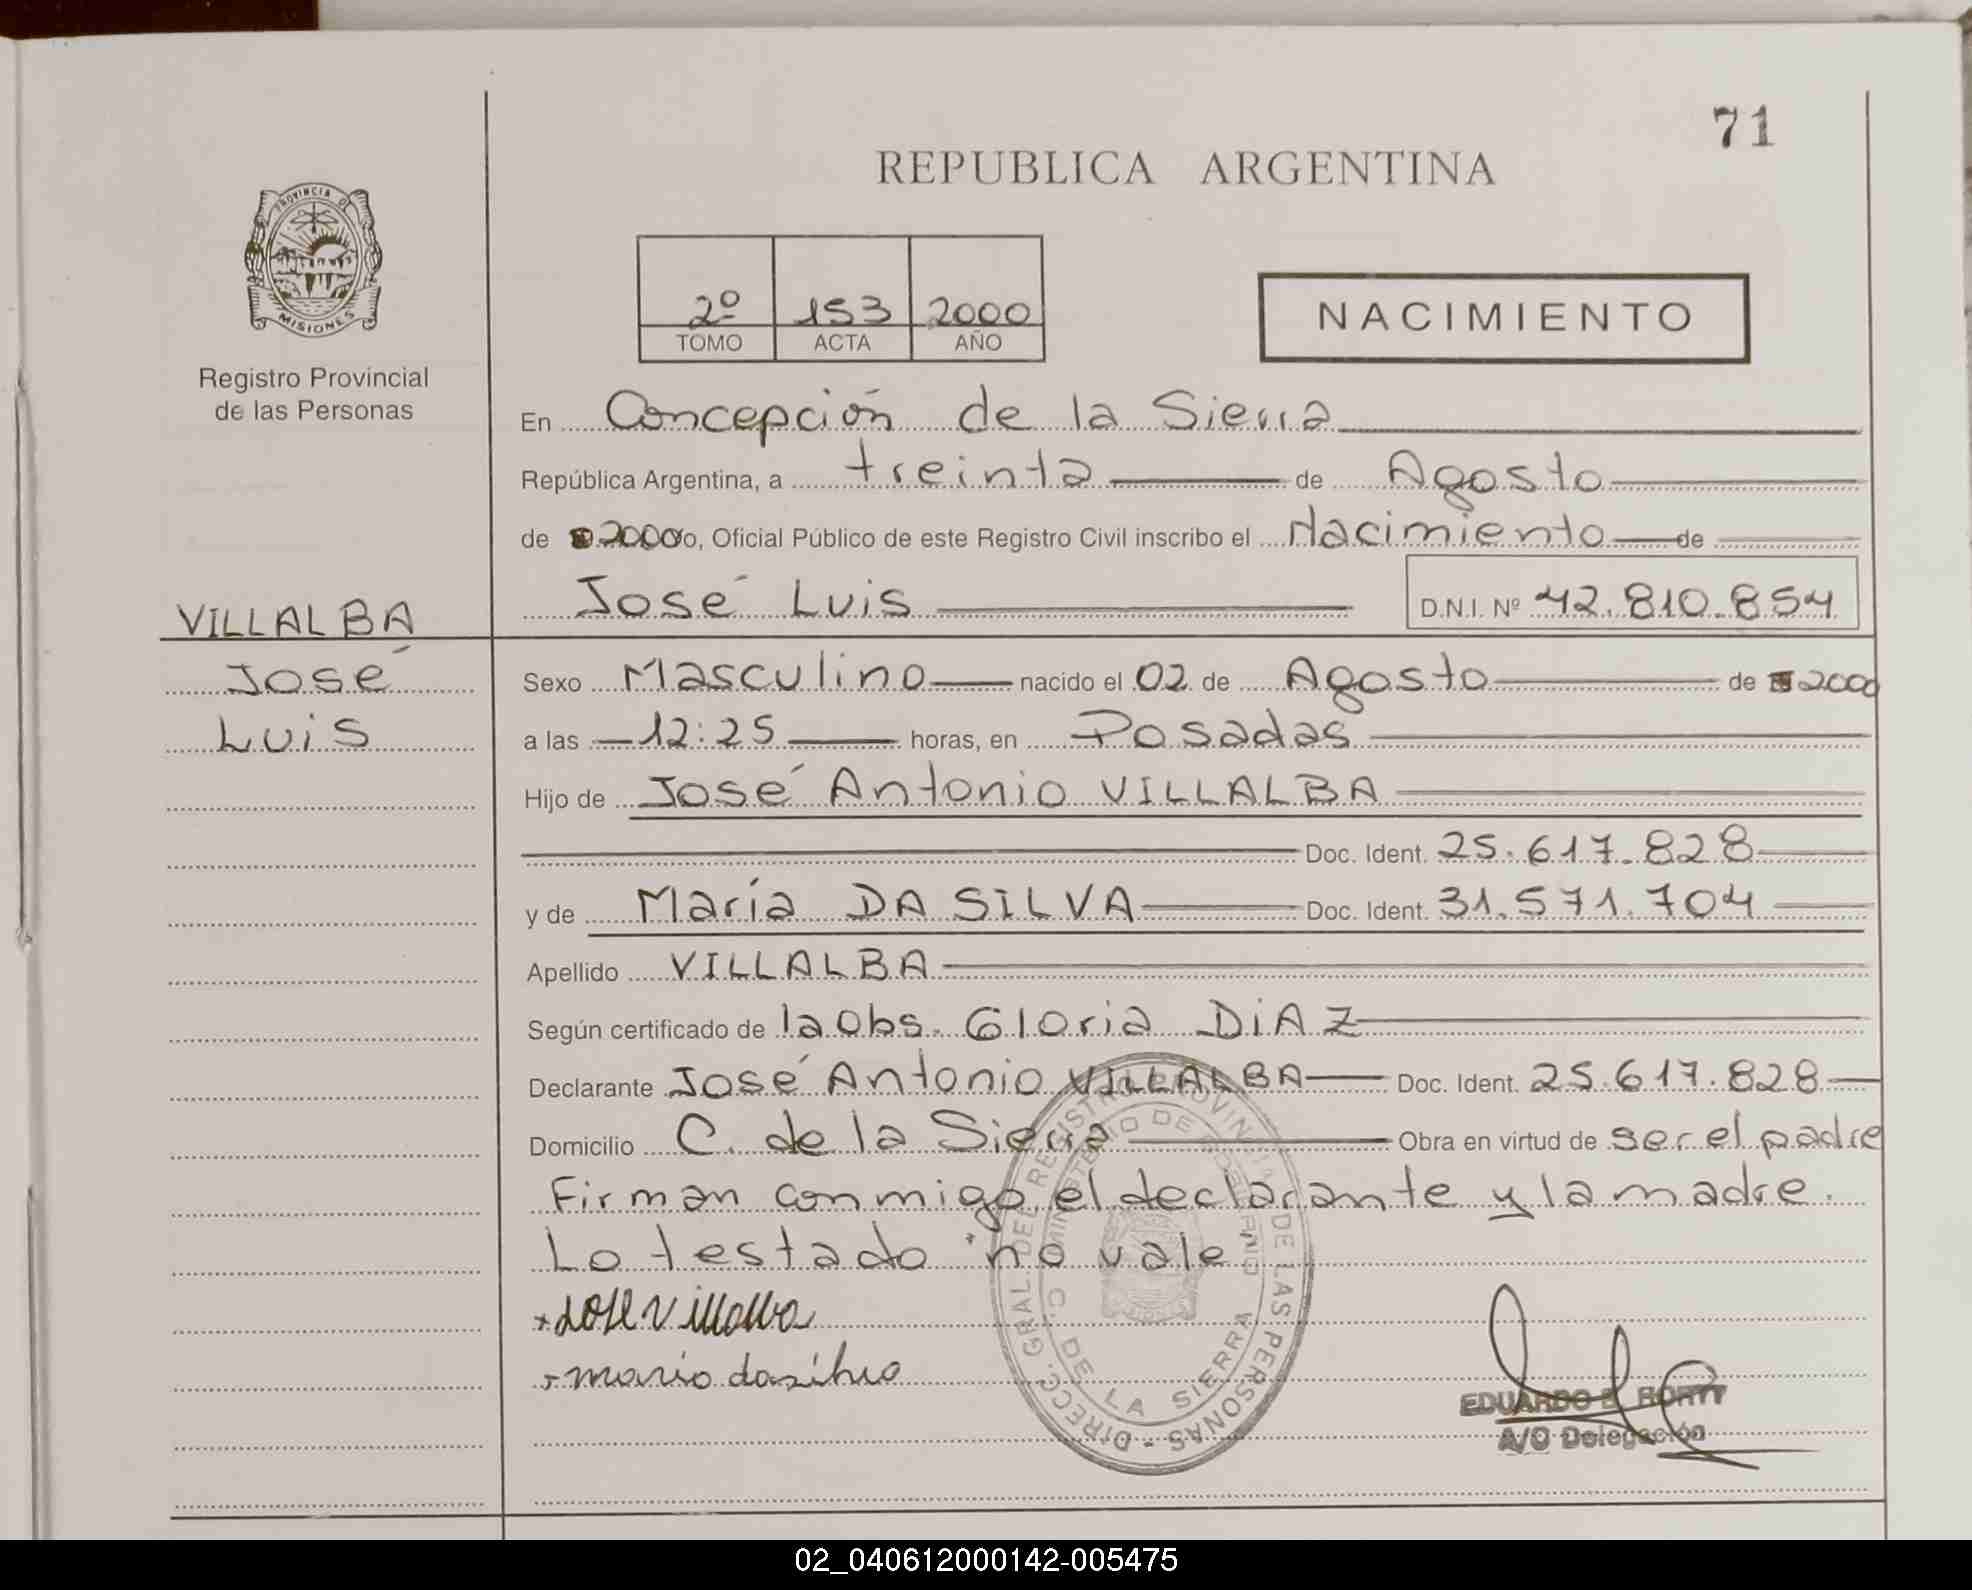 71
REPUBLICA ARGENTINA
PROVINCIA DE MISIONES
2º 153 2000
TOMO ACTA AÑO
NACIMIENTO
Registro Provincial
de las Personas
En Concepción de la Sierra
República Argentina, a treinta de Agosto
de 2000 o, Oficial Público de este Registro Civil inscribo el Nacimiento de
José Luis D.N.I. Nº 42.810.854
VILLALBA
José
Luis
Sexo Masculino nacido el 02 de Agosto de 2000
a las 12:25 horas, en Posadas
Hijo de José Antonio VILLALBA
Doc. Ident. 25.617.828
y de María DA SILVA Doc. Ident. 31.571.704
Apellido VILLALBA
Según certificado de la Obs. Gloria DiAZ
Declarante José Antonio VILLALBA Doc. Ident. 25.617.828
Domicilio C. de la Sierra Obra en virtud de ser el padre
Firman conmigo el declarante y la madre.
Lo testado no vale
Jose Villalba
maria dasilva
DIRECC. GRAL. DEL REGISTRO PROVINCIAL DE LAS PERSONAS
MINISTERIO DE GOBIERNO
C. DE LA SIERRA
EDUARDO
A/C Delegación
02_040612000142-005475